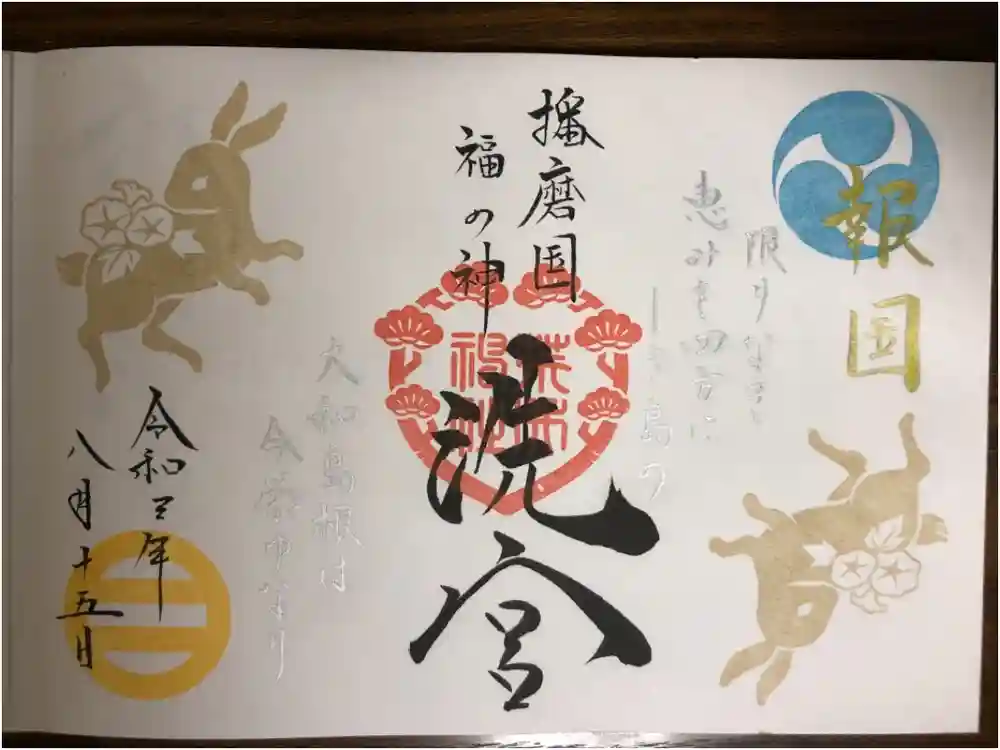 報国
限りなき
恵みを四方に
しき島の
播磨国
福の神
洗宮
荒井
神社
大和島根は
今榮ゆなり
令和三年
八月十五日